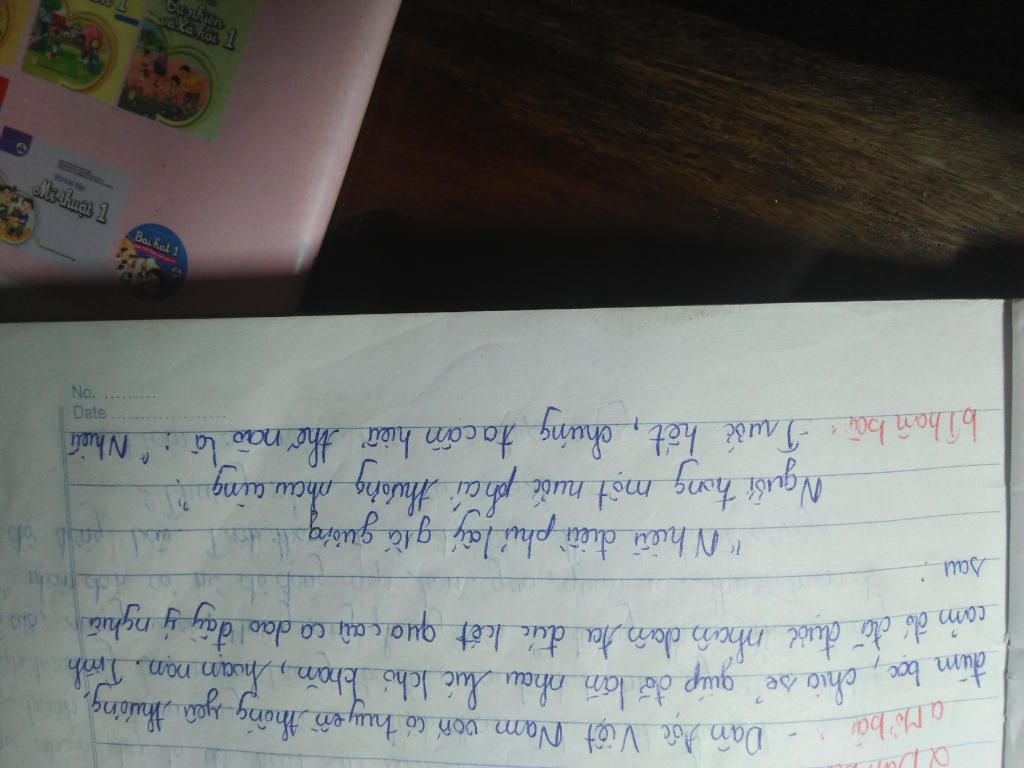 2) Dàn
a) Mở bài:
- Dân tộc Việt Nam vốn có truyền thống yêu thương,
đùm bọc, chia sẻ giúp đỡ lẫn nhau lúc khó khăn, hoạn nạn. Tình
cảm đó đã được nhân dân ta đúc kết qua câu ca dao đầy ý nghĩa
sau:
"Nhiễu điều phủ lấy giá gương
Người trong một nước phải thương nhau cùng".
b) Thân bài:
- Trước hết, chúng ta cần hiểu thế nào là: "Nhiễu
No. .........
Date ...................
Tự nhiên
và Xã hội 1
1
Mĩ thuật 1
Bài hát 1